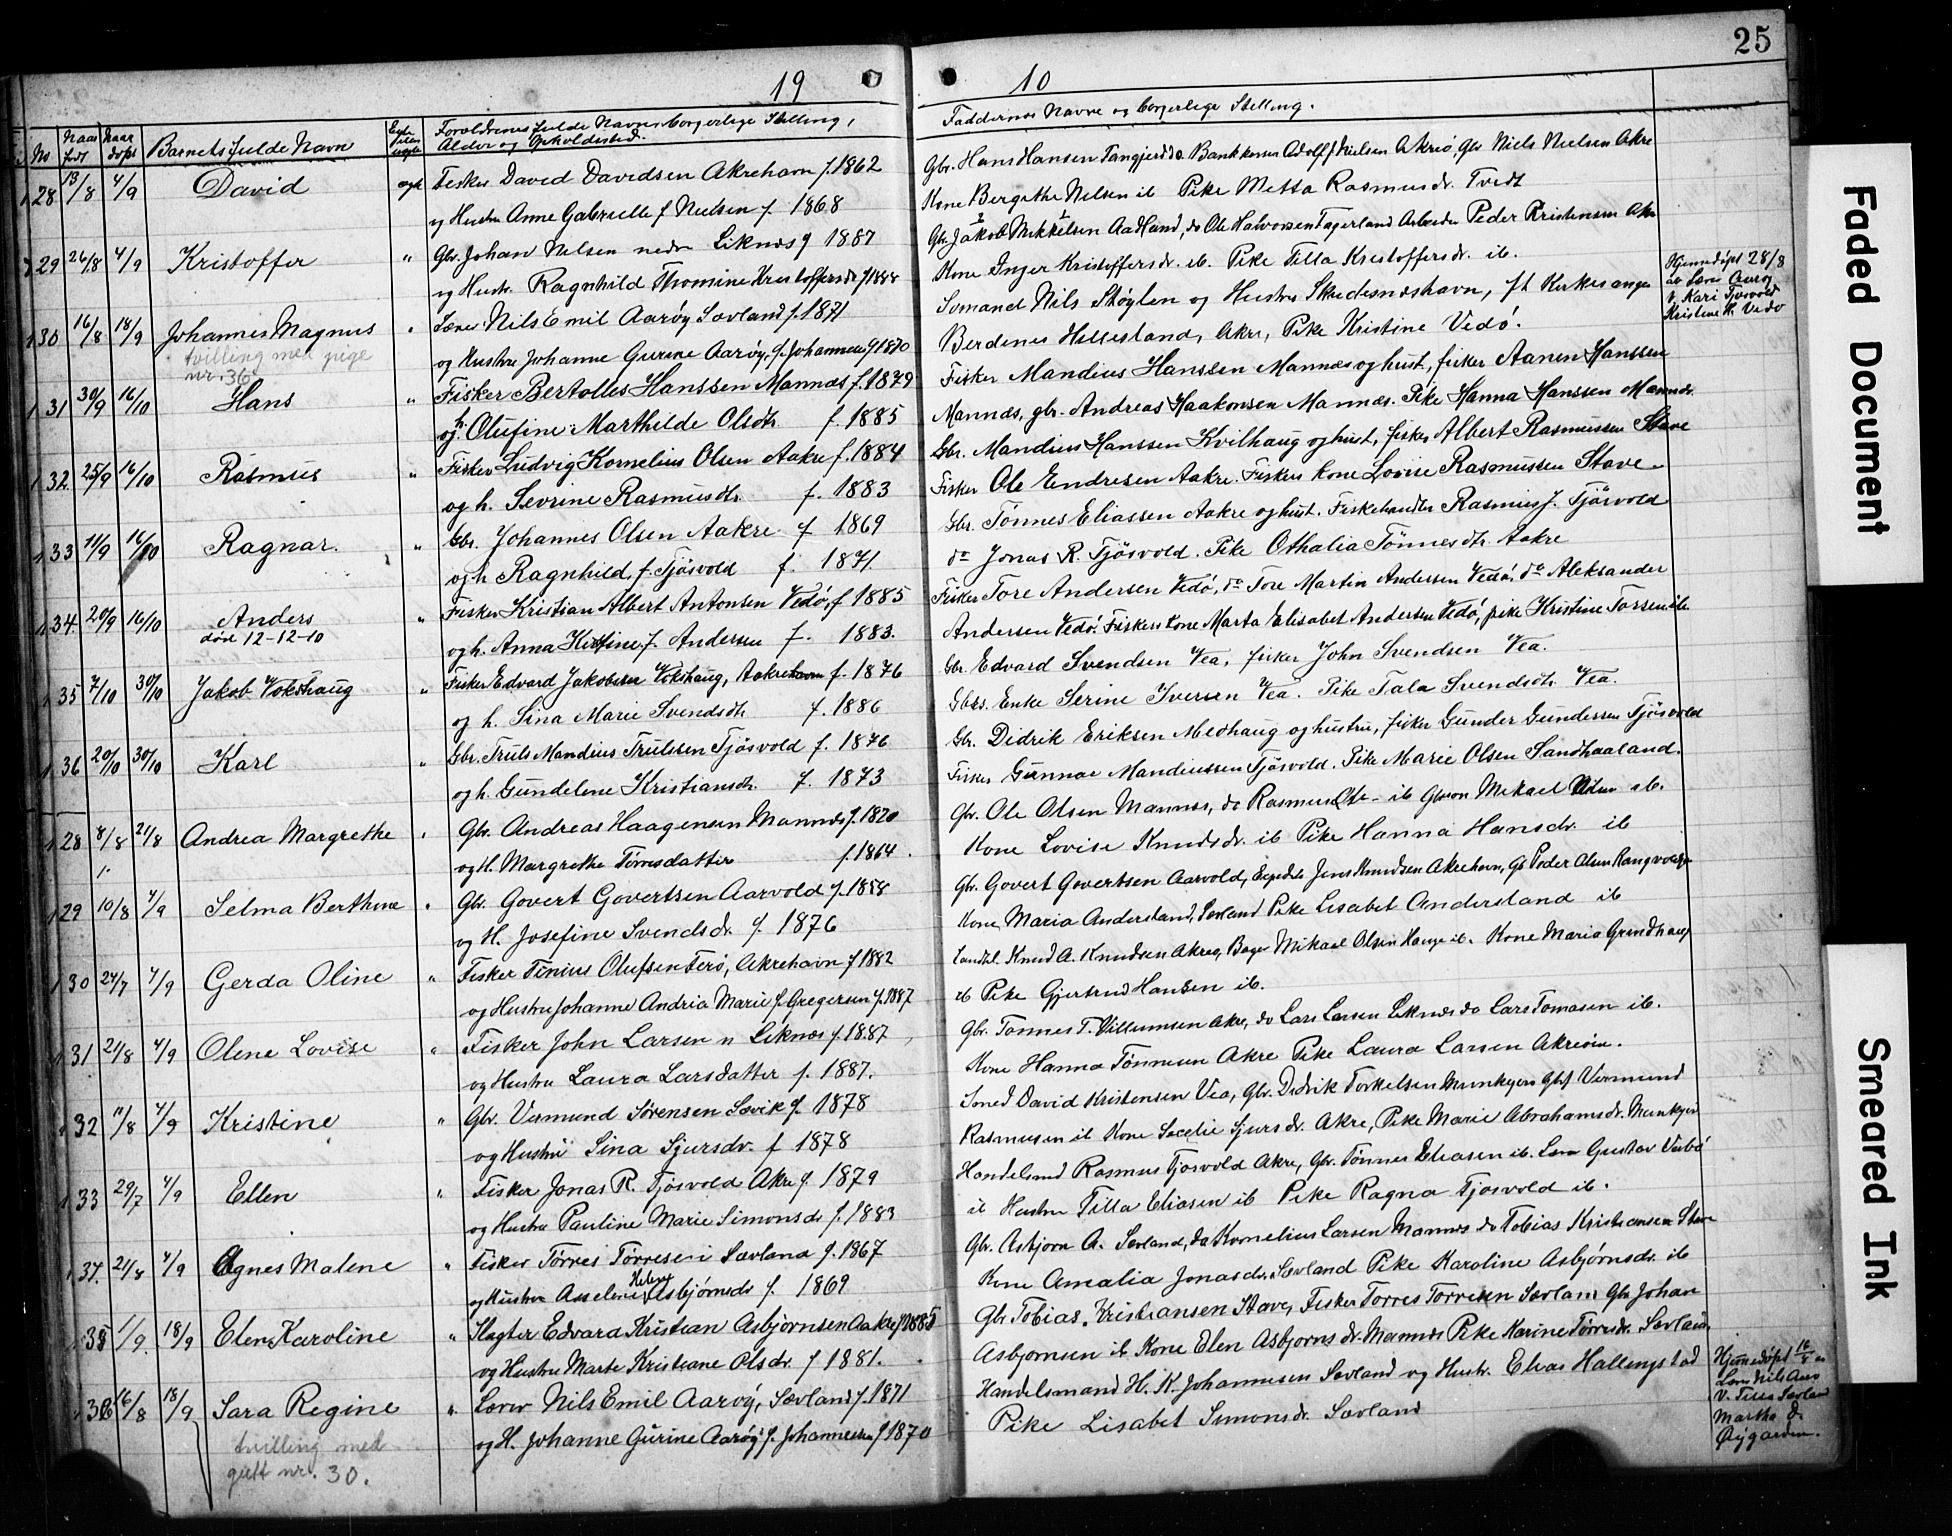 25
19 10
No Naar født Naar døpt Barnets fulde Navn Forældrenes fulde Navne, borgerlige Stilling, Alder og Opholdssted. Faddernes Navne og borgerlige Stilling.
28 13/8 4/9 David egte Fisker David Davidsen Akrehavn f. 1862 Gbr. Hans Hansen do Bankkasser Adolf Nielsen Akre, Gbr Niels Nielsen Akre
og Hustru Anne Gabrielle f Nielsen f. 1868 Kone Bergithe Nilsen ib Pike Metta Rasmusdr. Tvedt
29 26/8 4/9 Kristoffer " Gbr. Johan Nilsen nedre Liknes f 1887 Gbr. Jakob Mikkelsen Aadland, do Ole Halvorsen Fagerland Arbeider Peder Kristensen Akre
og Hustr. Ragnhild Thomine Kristoffersdr f 1888 Kone Inger Kristoffersdr. ib. Pike Tilla Kristoffersdr. ib.
30 16/8 18/9 Johannes Magnus " Lærer Nils Emil Aarøy Sævland f. 1871 Sømand Nils Støylen og Hustru Skudesneshavn, fh Kirkesanger Hjemmedøpt 28/8 av Lærer Aarøy v. Kari Tjøsvold Kristine K. Vedø
tvilling med pige nr. 36 og Hustru Johanne Gurine Aarøy, f. Johannesen f 1870 Berdenes Hillesland, Akre, Pike Kristine Vedø.
31 30/9 16/10 Hans " Fisker Bertolles Hanssen Mannes f. 1879 Fisker Mandius Hanssen Mannes og hust, fisker Aanen Hanssen
og h. Olufine Marthilde Olsdtr. f. 1885 Mannes, gbr. Andreas Haakonsen Mannes. Pike Hanna Hanssen Mannes.
32 25/9 16/10 Rasmus " Fisker Ludvig Kornelius Olsen Aakre f. 1884 Gbr. Mandius Hanssen Kvilhaug og hust, fisker Albert Rasmussen Stave
og h. Sevrine Rasmusdtr. f. 1883 Fisker Ole Endresen Aakre. Fiskers kone Lovise Rasmussen Stave
33 11/9 16/10 Ragnar. " Gbr. Johannes Olsen Aakre f 1869 Gbr. Tønnes Eliassen Aakre og hust. Fiskehandler Rasmus J. Tjösvold
og h Ragnhild, f. Tjösvold f. 1871 do Jonas R. Tjösvold. Pike Othalia Tönnesdtr. Aakre
34. 20/9 16/10 Anders " Fisker Kristian Albert Antonsen Vedö, f 1885 Fisker Tore Andersen Vedö, do Tore Martin Andersen Vedö, do Aleksander
død 12-12-10 og h. Anna Kistine f. Andersen f. 1883. Andersen Vedö. Fiskers kone Marta Elisabet Andersen Vedö, pike Kristine Torsendtr.
35 7/10 30/10 Jakob Vokshaug " Fisker Edvard Jakobsen Vokshaug, Aakrehavn f. 1876 Gbr. Edvard Svendsen Vea, fisker John Svendsen Vea.
og h. Sina Marie Svendsdtr. f. 1886 Gbrs. Enke Serine Iversen Vea. Pike Tala Svendsdtr. Vea.
36 20/10 30/10 Karl " Gbr. Truls Mandius Trulssen Tjösvold f. 1876 Gbr. Didrik Eriksen Medhaug og hustru, fisker Gunder Gundersen Tjösvold
og h. Gundelene Kristiansdtr. f. 1873 Fisker Gunnar Mandiussen Tjösvold. Pike Marie Olsen Sandhaaland.
28 8/8 21/8 Andrea Margrethe " Gbr. Andreas Haagensen Mannes f. 1870 Gbr. Ole Olsen Mannes, do Rasmus Ols- ib Mikael Nilsen ib.
og H. Margrethe Tørresdatter f. 1864. Kone Lovise Knudsdr. ib Pike Hanna Hansdr. ib
29 10/8 4/9 Selma Berthine " Gbr. Govert Govertsen Aarvold f. 1858 Gbr. Govert Govertsen Aarvold, Jens Knudsen Akrehavn, Gb Peder Olsen
og H. Josefine Svendsdr. f. 1876 Kone Maria Andersland, Sævland Pike Lisabet Andersland ib
30 24/7 4/9 Gerda Oline " Fisker Tinius Olufsen Ferø, Akrehavn f 1882 Landh. Knud A. Knudsen Akre, Bager Mikael Olsen Hauge ib. Kone Maria Grindhaug
og Hustru Johanne Andria Marie f Gregersen f. 1887 ib Pike Gjertrud Hansen ib.
31 21/8 4/9 Olene Lovise " Fisker John Larsen n Liknes f. 1887 Gbr. Tønnes T. Villumsen Akre, do Lars Larsen Liknes do Lars Tomasen ib.
og Hustru Laura Larsdatter f. 1887. Kone Hanna Tønnesen Akre Pike Laura Larsen
32 11/8 4/9 Kristine " Gbr. Vermund Sørensen Sævik f. 1878 David Kristensen Vea, Gbr. Didrik Torkelsen Munkejord Gbr Vermund
og Hustru Sina Sjursdr. f 1878 Rasmusen ib Kone Secelie Sjursdr. Akre, Pike Marie Abrahamsdr. Munkejord
33 29/7 4/9 Ellen " Fisker Jonas R. Tjøsvold Akre f. 1879 Handelsmd Rasmus Tjøsvold Akre, Gbr. Tønnes Eliasen ib. Gustav Vestbø
og Hustru Pauline Marie Simonsdr f. 1883 ib Hustru Tilla Eliasen ib Pike Ragna Tjøsvold ib.
34. 21/8 4/9 Agnes Malene " Fisker Tørres Tørresen Sævland f. 1867 Gbr. Asbjørn A. Sævland, do Kornelius Larsen Mannes do Tobias Kristiansen Stave
og Hustru Asselene Helene Asbjørnsdr f. 1869 Kone Amalia Jonasdr. Sævland Pike Karoline Asbjørnsdr. ib
35 1/9. 18/9 Elen Karoline " Slagter Edvard Kristian Asbjørnsen Aakre f 1885 Gbr. Tobias Kristiansen Stave, Fisker Tørres Tørresen Sævland Gbr Johan
og Hustru Marte Kristiane Olsdr. f 1881. Asbjørnsen ib Kone Elen Asbjørnsdr. Mannes Pike Karine Tørresdr. Sævland
36 16/8 18/9 Sara Regine " Lærer Nils Emil Aarøy, Sævland f. 1871 Handelsmand H. K. Johannesen Sævland og Hustr. Elias Hallingstad Hjemmedøpt 16/8 av Lærer Nils Aarø V. Tilla Sævland Martha D. Øygarden.
tvilling med gutt nr. 30. og H. Johanne Gurine Aarøy f. Johannesen f 1870 Pike Lisabet Simonsdr. Sævland
Faded Document
Smeared Ink